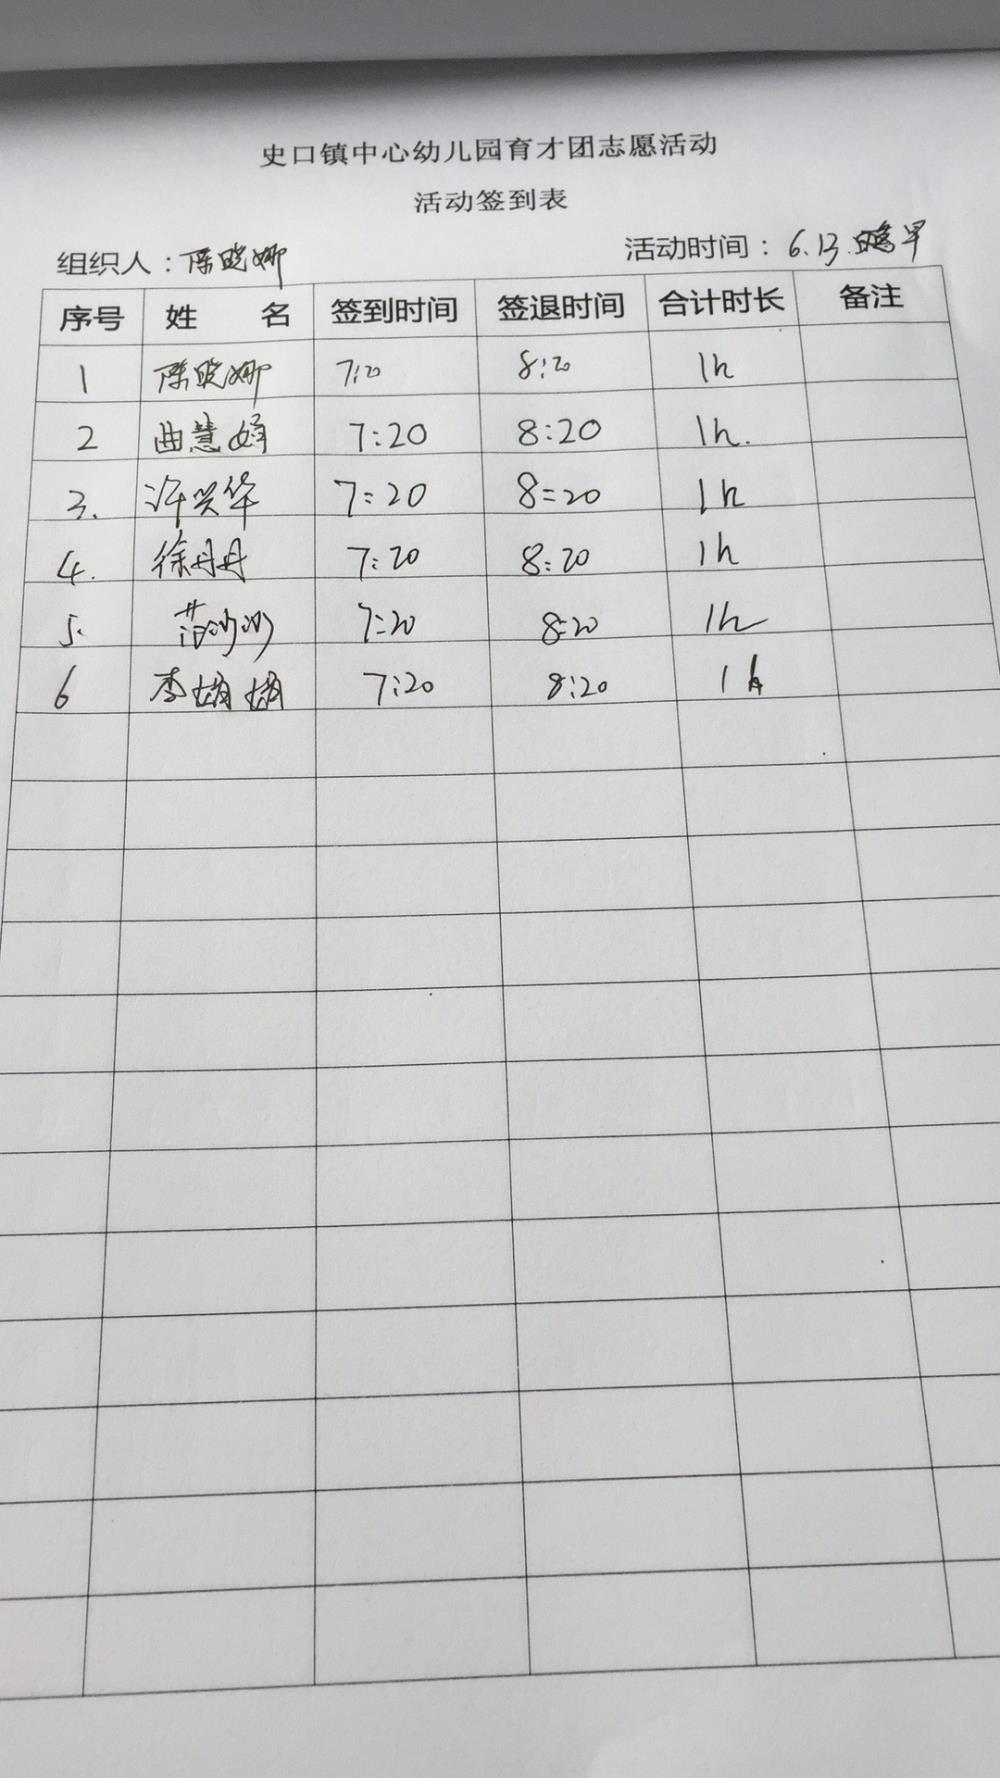 史口镇中心幼儿园育才团志愿活动
活动签到表
组织人：陈晓娜 活动时间：6.13. 早
序号 姓 名 签到时间 签退时间 合计时长 备注
1 陈晓娜 7:20 8:20 1h
2 曲慧娟 7:20 8:20 1h.
3. 许兴华 7:20 8:20 1h
4. 徐丹丹 7:20 8:20 1h
5. 范沙沙 7:20 8:20 1h
6 李娟娟 7:20 8:20 1h